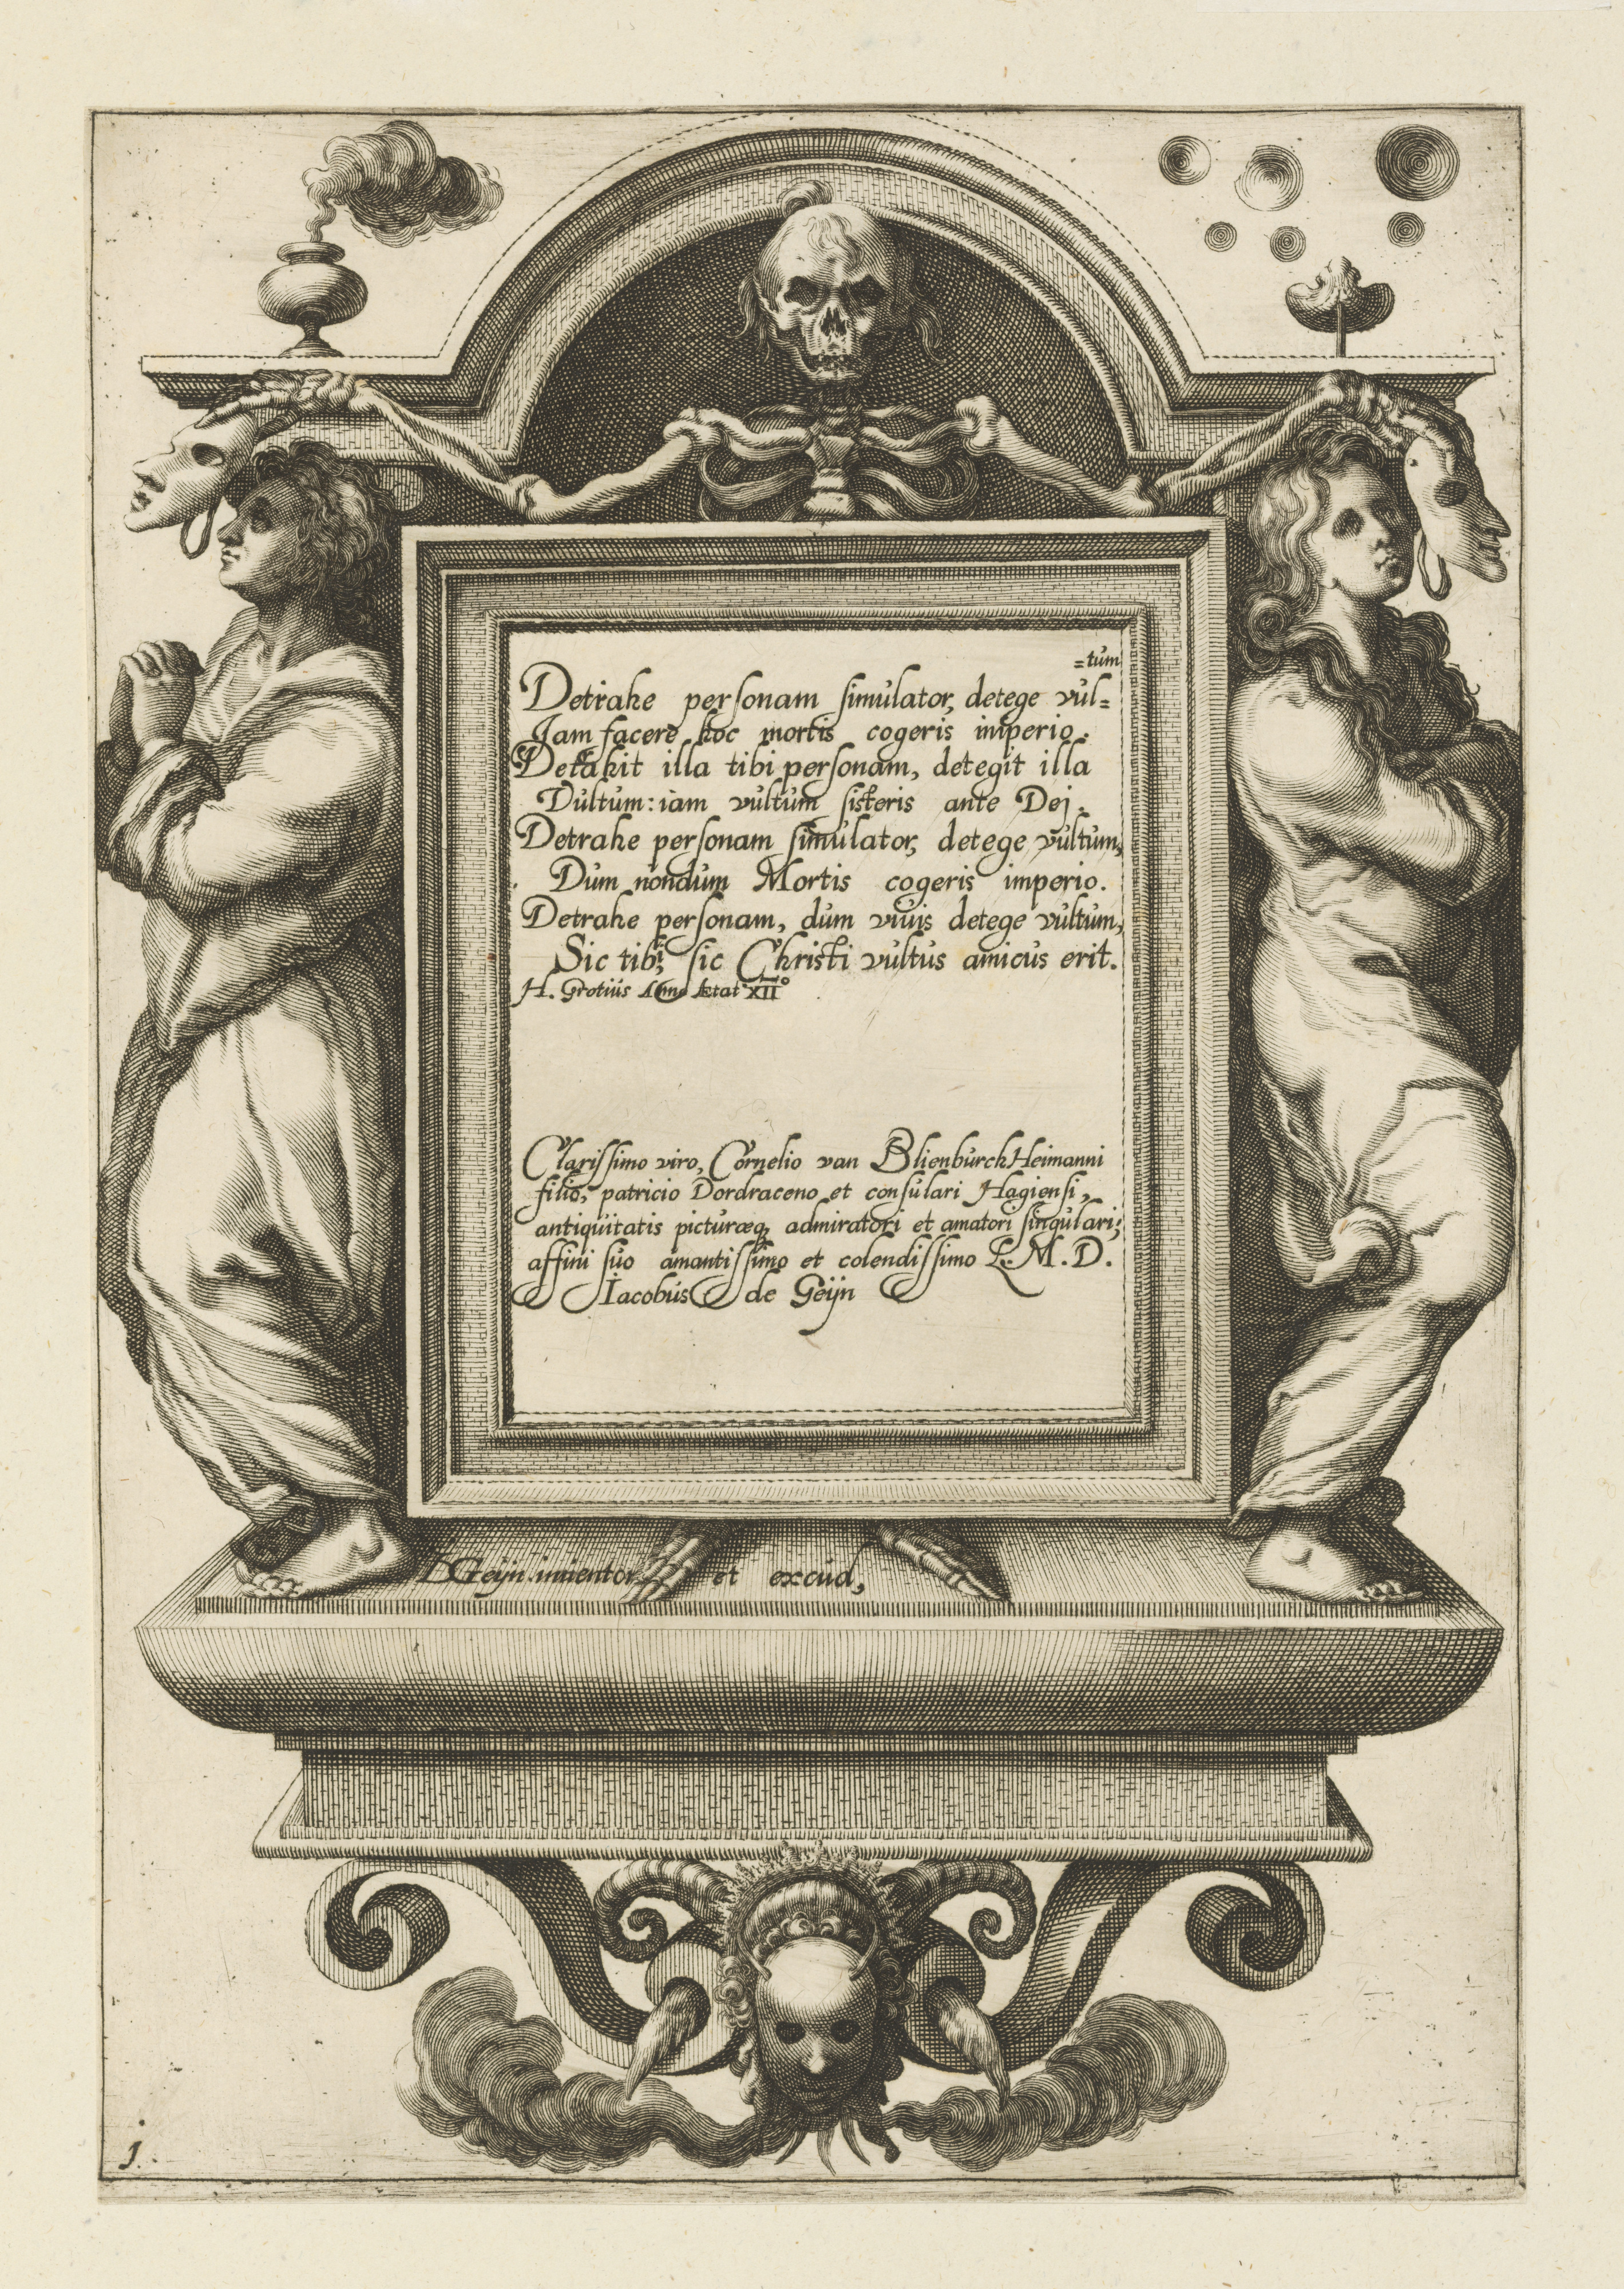 =tum
Detrahe personam simulator, detege vul=
Jam facere hoc mortis cogeris imperio.
Detrahit illa tibi personam, detegit illa
Vultum: iam vultum sisteris ante Dej.
Detrahe personam simulator, detege vultum,
Dum nondum Mortis cogeris imperio.
Detrahe personam, dum viuis detege vultum,
Sic tibi, sic Christi vultus amicus erit.
H. Grotius Anno Ætat XII°
Clarissimo viro, Cornelio van Blienburck Heimanni
filio, patricio Dordraceno et consulari Hagiensi,
antiquitatis picturæq, admiratori et amatori singulari;
affini suo amantissimo et colendissimo L. M. D.
Iacobus de Geijn
DGeijn inuentor et excud,
1.